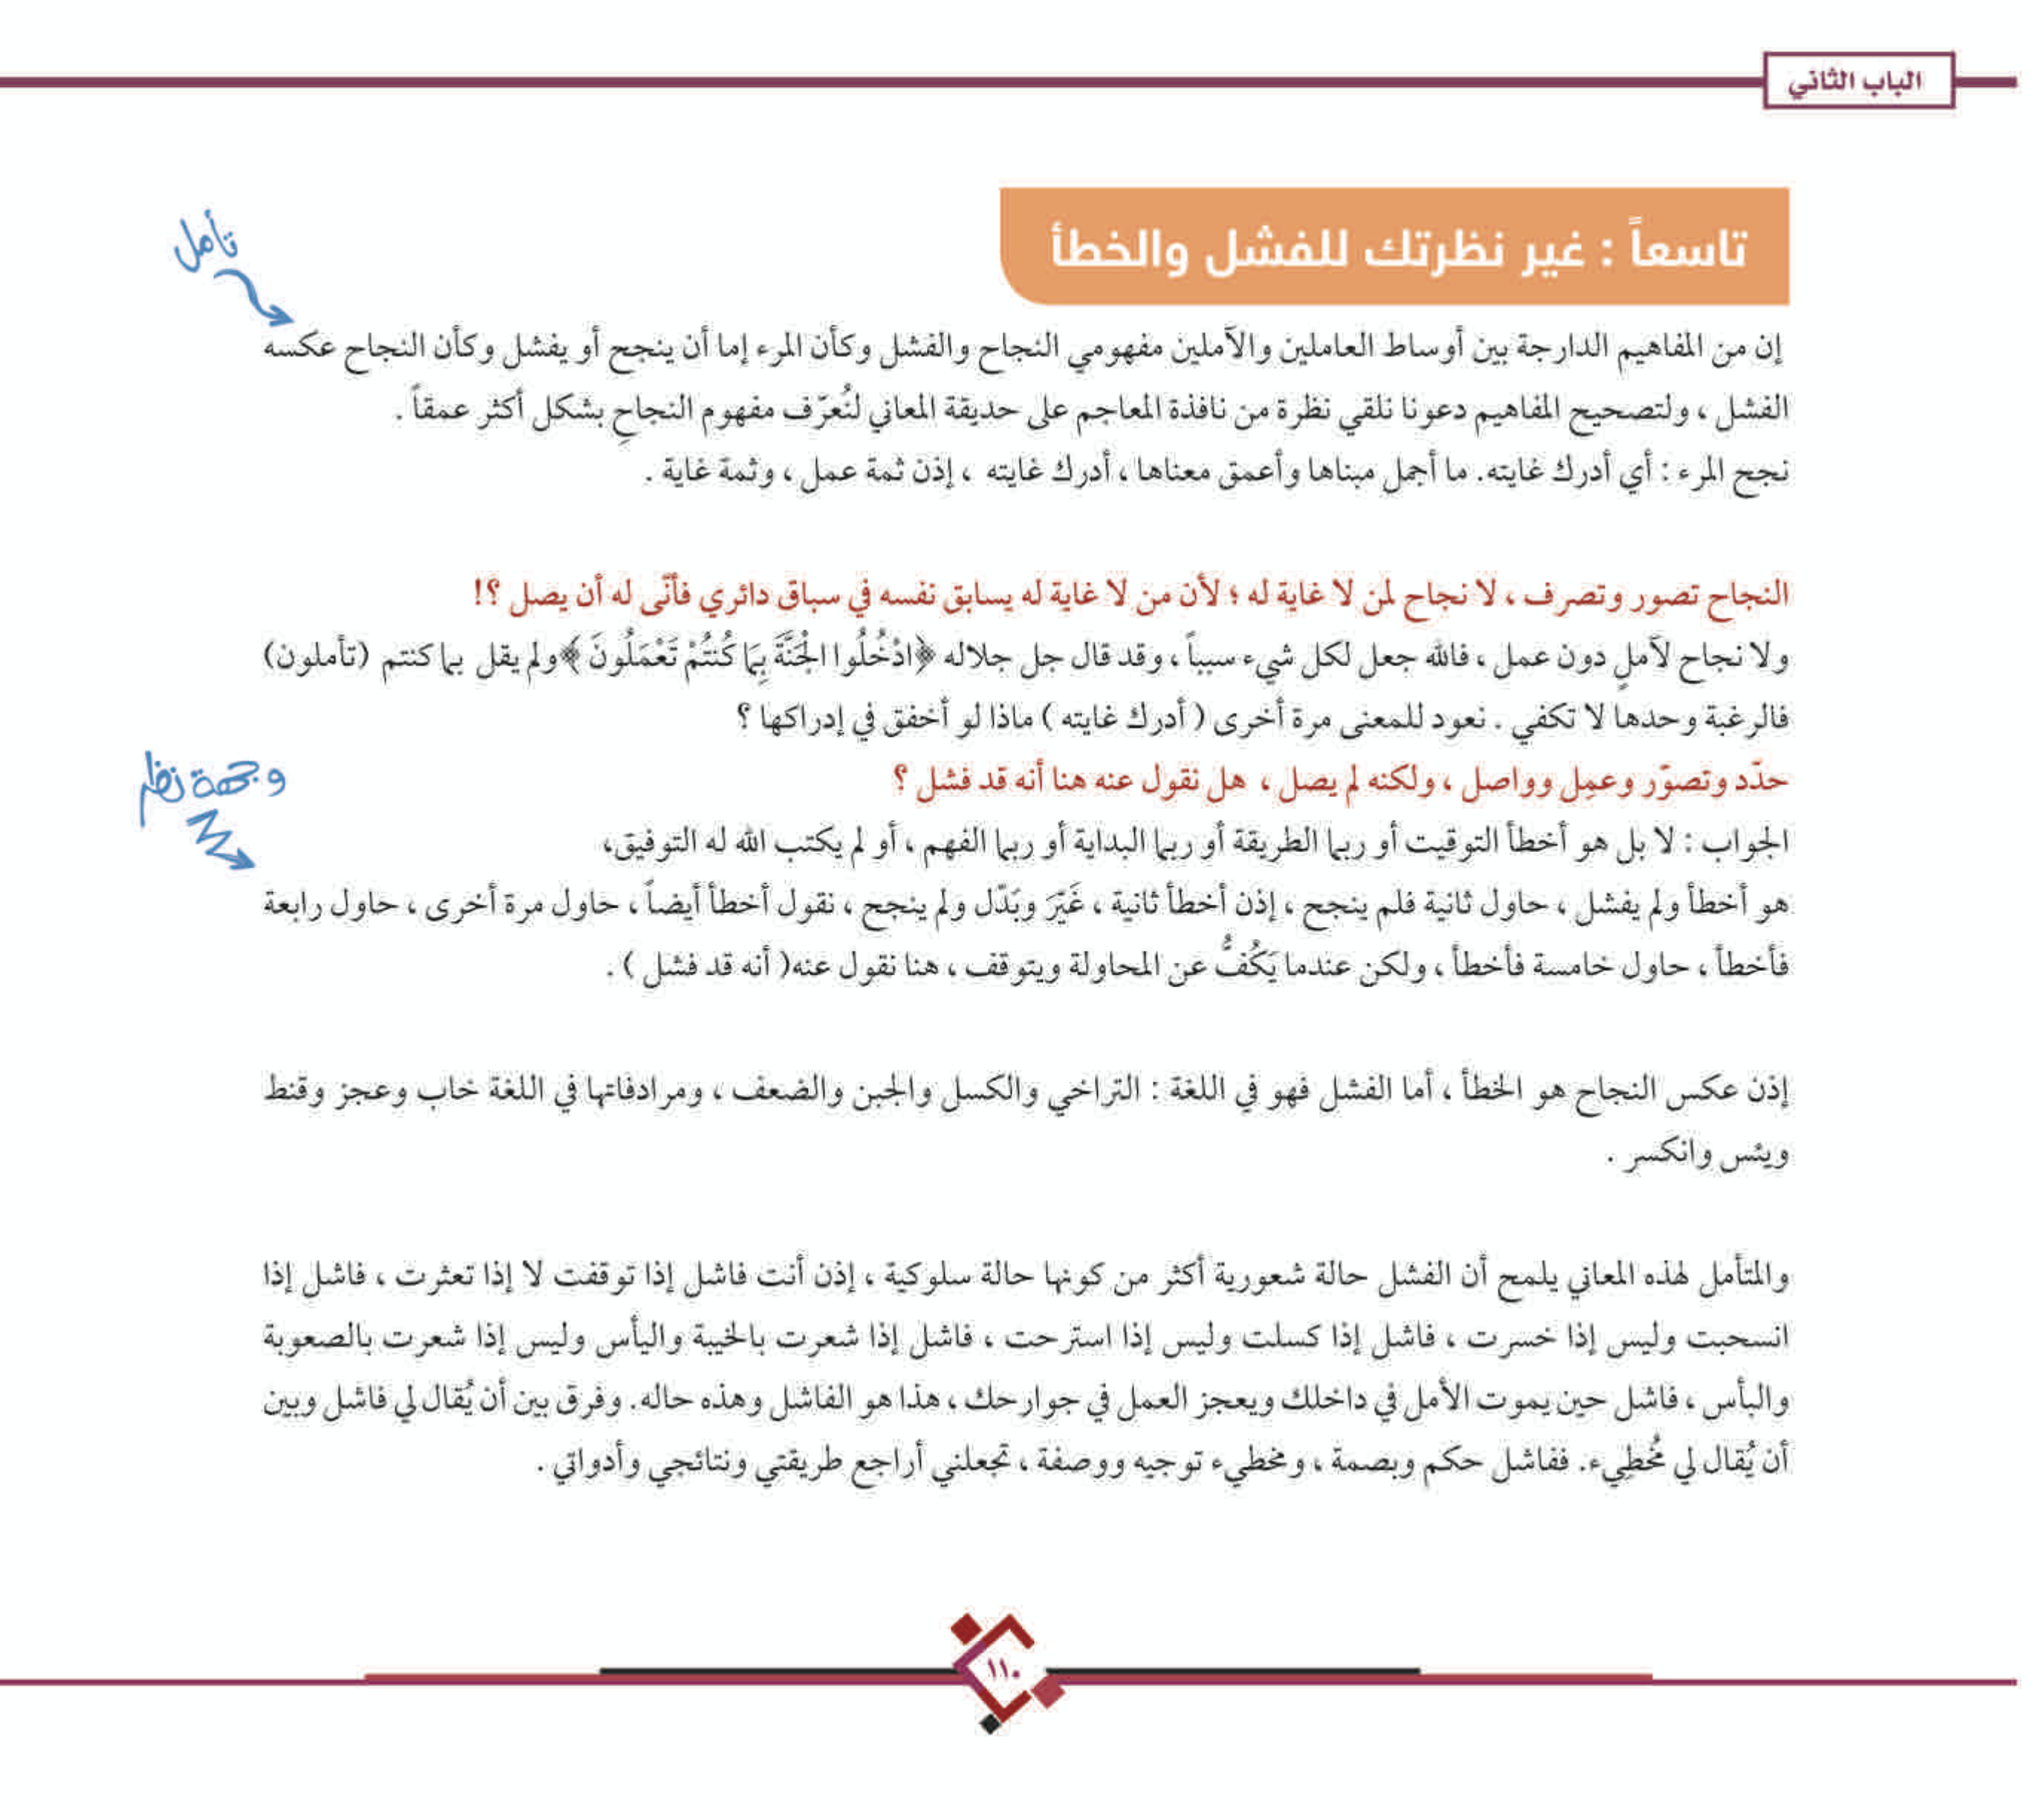 الباب الثاني
تاسعاً : غير نظرتك للفشل والخطأ
تأمل
إن من المفاهيم الدارجة بين أوساط العاملين والآملين مفهومي النجاح والفشل وكأن المرء إما أن ينجح أو يفشل وكأن النجاح عكسه
الفشل ، ولتصحيح المفاهيم دعونا نلقي نظرة من نافذة المعاجم على حديقة المعاني لنُعرّف مفهوم النجاحِ بشكل أكثر عمقاً .
نجح المرء : أي أدرك غايته. ما أجمل مبناها وأعمق معناها ، أدرك غايته ، إذن ثمة عمل ، وثمة غاية .
النجاح تصور وتصرف ، لا نجاح لمن لا غاية له ؛ لأن من لا غاية له يسابق نفسه في سباق دائري فأنّى له أن يصل ؟!
ولا نجاح لآملٍ دون عمل ، فالله جعل لكل شيء سبباً ، وقد قال جل جلاله ﴿ادْخُلُوا الْجَنَّةَ بِمَا كُنتُمْ تَعْمَلُونَ﴾ ولم يقل بما كنتم (تأملون)
فالرغبة وحدها لا تكفي . نعود للمعنى مرة أخرى ( أدرك غايته ) ماذا لو أخفق في إدراكها ؟
وجهة نظر
حدّد وتصوّر وعمِل وواصل ، ولكنه لم يصل ، هل نقول عنه هنا أنه قد فشل ؟
الجواب : لا بل هو أخطأ التوقيت أو ربما الطريقة أو ربما البداية أو ربما الفهم ، أو لم يكتب الله له التوفيق،
هو أخطأ ولم يفشل ، حاول ثانية فلم ينجح ، إذن أخطأ ثانية ، غَيّرَ وبَدّل ولم ينجح ، نقول أخطأ أيضاً ، حاول مرة أخرى ، حاول رابعة
فأخطأ ، حاول خامسة فأخطأ ، ولكن عندما يَكُفُّ عن المحاولة ويتوقف ، هنا نقول عنه( أنه قد فشل ) .
إذن عكس النجاح هو الخطأ ، أما الفشل فهو في اللغة : التراخي والكسل والجبن والضعف ، ومرادفاتها في اللغة خاب وعجز وقنط
ويئس وانكسر .
والمتأمل لهذه المعاني يلمح أن الفشل حالة شعورية أكثر من كونها حالة سلوكية ، إذن أنت فاشل إذا توقفت لا إذا تعثرت ، فاشل إذا
انسحبت وليس إذا خسرت ، فاشل إذا كسلت وليس إذا استرحت ، فاشل إذا شعرت بالخيبة واليأس وليس إذا شعرت بالصعوبة
والبأس ، فاشل حين يموت الأمل في داخلك ويعجز العمل في جوارحك ، هذا هو الفاشل وهذه حاله. وفرق بين أن يُقال لي فاشل وبين
أن يُقال لي مُخطِيء. ففاشل حكم وبصمة ، ومخطيء توجيه ووصفة ، تجعلني أراجع طريقتي ونتائجي وأدواتي .
١١٠